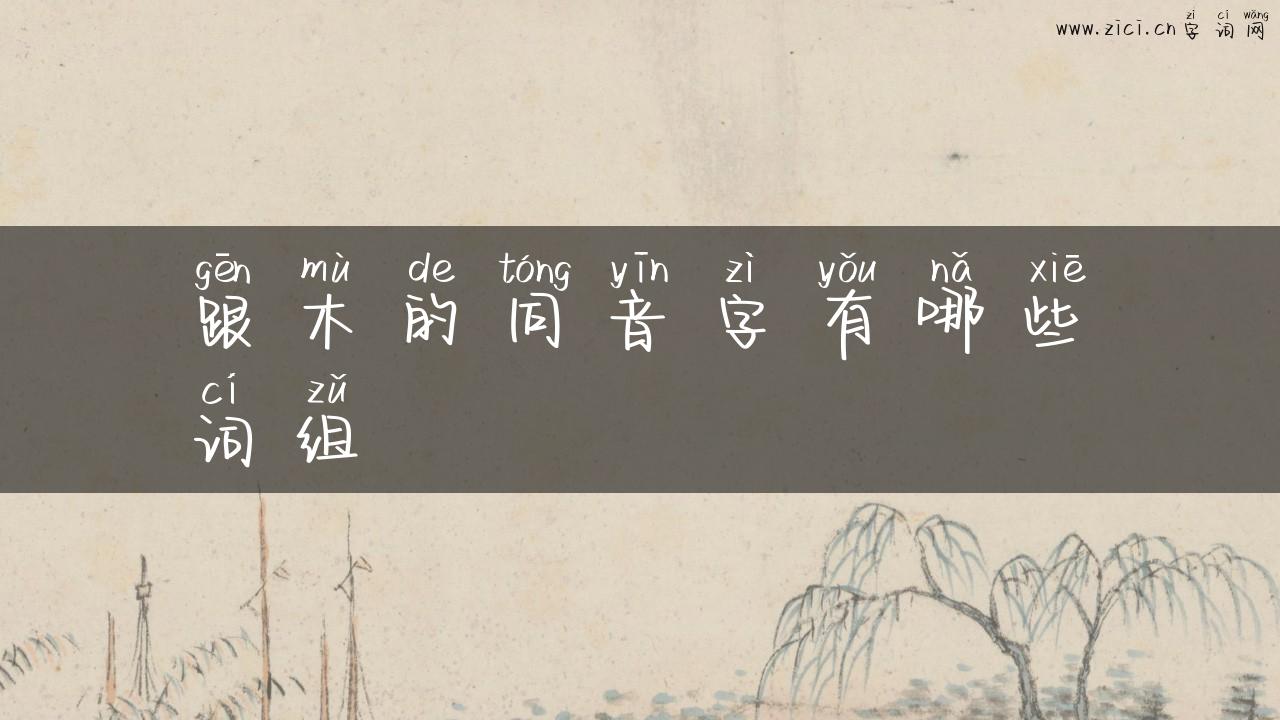 zì cí wǎng
www.zici.cn 字词网
gēn mù de tóng yīn zì yǒu nǎ xiē
跟木的同音字有哪些
cí zǔ
词组